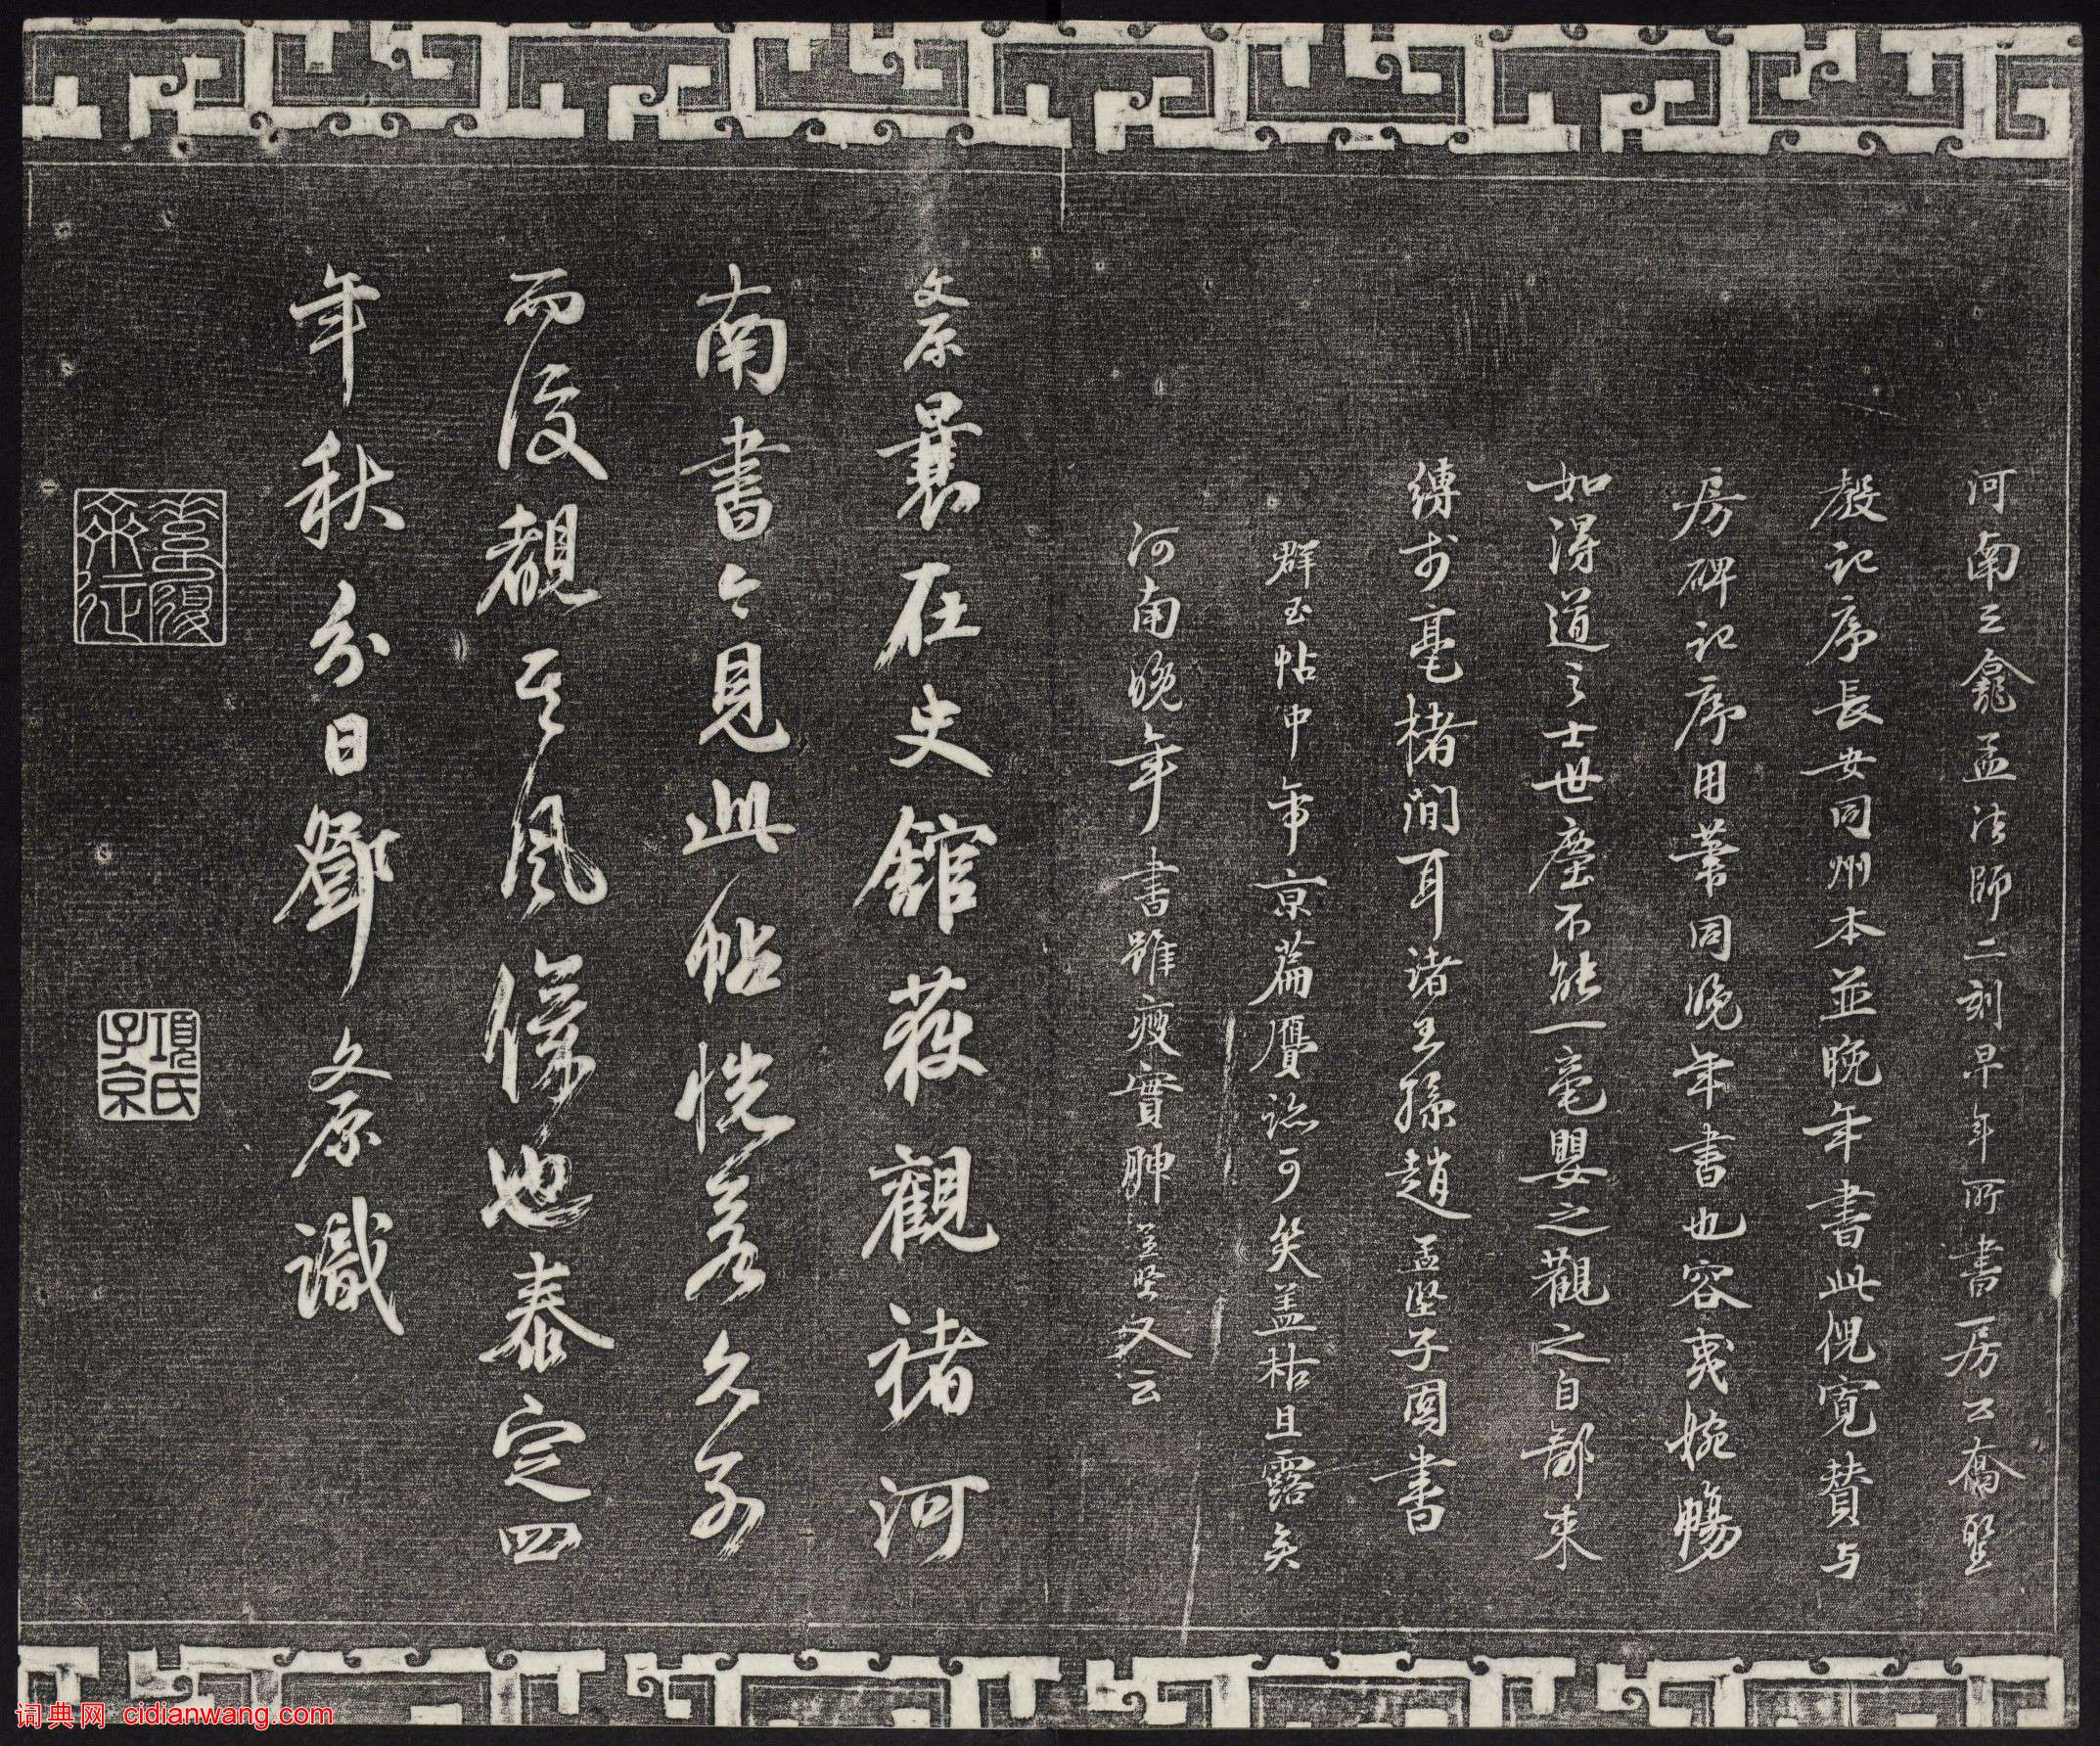 河南三龕孟法師二刻早年所書房公喬聖
教記序長安同州本並晚年書此倪寬贊與
房碑記序用筆同晚年書也容夷婉暢
如得道之士世塵不能一毫嬰之觀之自鄙束
縛於毫楮間耳諸王孫趙孟堅子固書
群玉帖中帝京篇贋跡可笑蓋枯且露矣
河南晚年書雖瘦實腴孟堅又云
文原曩在史館獲觀褚河
南書今見此帖恍若久別
而復覩其風儀也泰定四
年秋分日鄧文原識
項氏子京
词典网 cidianwang.com